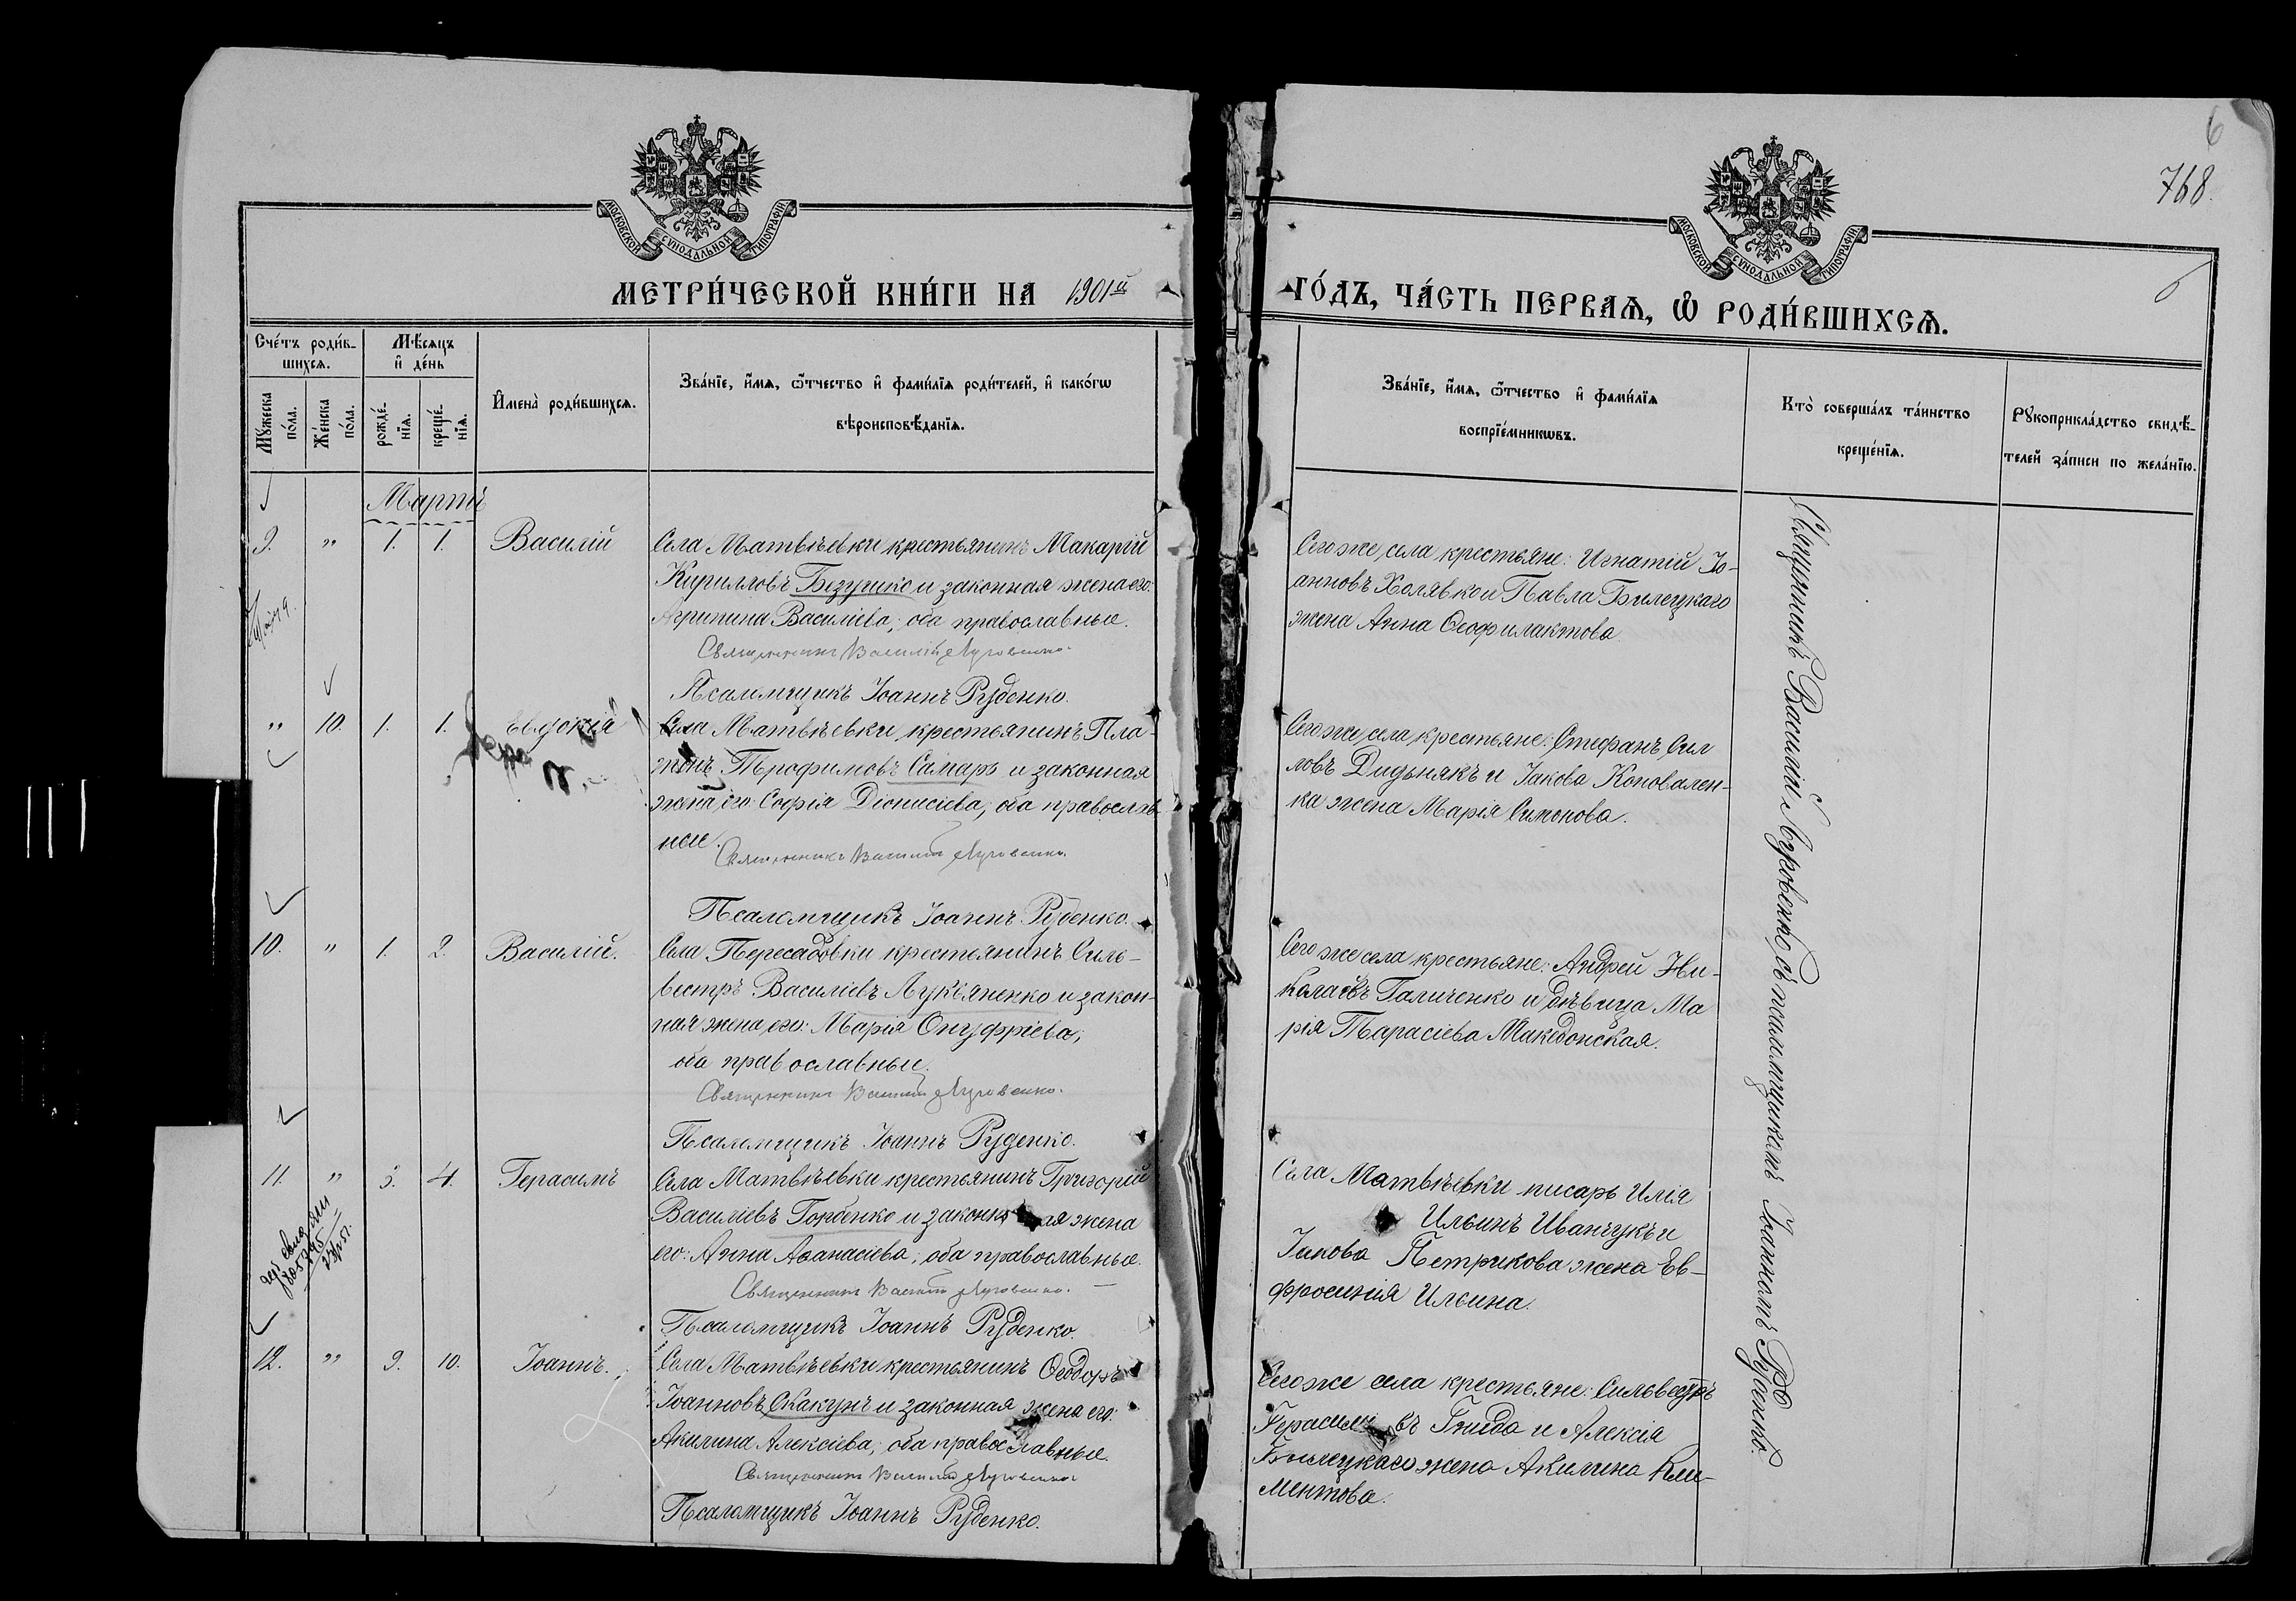 6
768.
МОСКОВСКОЙ СУНОДАЛЬНОЙ ТИПОГРАФІИ
МОСКОВСКОЙ СУНОДАЛЬНОЙ ТИПОГРАФІИ
МЕТРИ́ЧЕСКОЙ КНИ́ГИ НА 1901й
ГО́ДЪ, ЧА́СТЬ ПЕРВАѦ, Ѽ РОДИ́ВШИХСѦ.
Сче́тъ роди́в-
шихсѧ.
Мѣ́сяцъ
и҆ де́нь
Мꙋ́жеска
по́ла.
Же́нска
по́ла.
рожде́-
нїѧ.
креще́-
нїѧ.
И҆мена̀ роди́вшихсѧ.
Зва́нїе, и҆́мѧ, ѻ҆́тчество и҆ фами́лїѧ роди́телей, и҆ како́гѡ
вѣроисповѣ́данїѧ.
Зва́нїе, и҆́мѧ, ѻ҆́тчество и҆ фами́лїѧ
воспрїе́мникѡвъ.
Кто̀ соверша́лъ та́инство
креще́нїѧ.
Рꙋкоприкла́дство свидѣ́-
телей за́писи по жела́нїю.
Мартъ
9. " 1. 1. Василій
Села Матвѣевки крестьянинъ Макарій
Кирилловъ Безушко и законная жена его:
Агрипина Василіева, оба православные.
Священникъ Василій Луговенко.
Псаломщикъ Іоаннъ Руденко.
Сего же села крестьяне: Игнатій Іо-
анновъ Холявко и Павла Билецкаго
жена Анна Ѳеофилактова.
" 10. 1. 1. Евдокія
Села Матвѣевки крестьянинъ Пла-
тонъ Трофимовъ Самарь и законная
жена его: Софія Діонисіева, оба православ-
ные.
Священникъ Василій Луговенко.
Псаломщикъ Іоаннъ Руденко.
Сего же села крестьяне: Стефанъ Сил
ловъ Дидьнякъ и Іакова Коновален-
ка жена Марія Симонова.
10. " 1. 2. Василій.
Села Пересадовки крестьянинъ Силь-
вестръ Василіевъ Лукьяненко и закон-
ная жена его: Марія Онуфріева,
оба православные.
Священникъ Василій Луговенко.
Псаломщикъ Іоаннъ Руденко.
Сего же села крестьяне: Андрей Ни-
колаевъ Галиченко и дѣвица Ма
рія Тарасіева Македонская.
11. " 3. 4. Герасимъ
Села Матвѣевки крестьянинъ Григорій
Василіевъ Горбенко и законная жена
его: Анна Аѳанасіева, оба православные.
Священникъ Василій Луговенко.
Псаломщикъ Іоаннъ Руденко.
Села Матвѣевки писарь Илія
Ильинъ Иванчукъ и
Іакова Петрикова жена Ев-
фросинія Ильина.
12. " 9. 10. Іоаннъ.
Села Матвѣевки крестьянинъ Ѳеодоръ
Іоанновъ Скакунъ и законная жена его:
Акилина Алексіева, оба православные.
Священникъ Василій Луговенко
Псаломщикъ Іоаннъ Руденко.
Сего же села крестьяне: Сильвестръ
Герасимовъ Гнида и Алексія
Билецкаго жена Акилина Кли-
ментова.
Священникъ Василій Луговенко съ псаломщикомъ Іоанномъ Руденко.